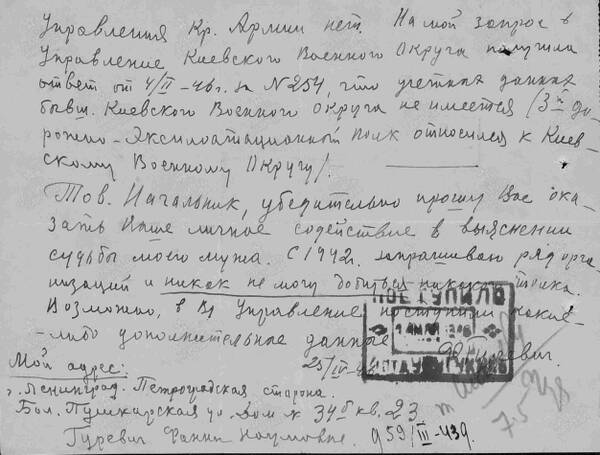 Управления Кр. Армии нет. На мой запрос в
Управление Киевского Военного Округа получила
ответ от 4/II-46г. за N254, что учетных данных
бывш. Киевского Военного Округа не имеется (3й до-
рожно-Эксплоатационный полк относился к Киев-
скому Военному Округу).
Тов. Начальник, убедительно прошу Вас ока-
зать Ваше личное содействие в выяснении
судьбы моего мужа. С 1942. запрашиваю ряд орга-
низаций и никак не могу добиться никакого толка.
Возможно, в Ваше Управление поступили какие-
-либо дополнительные данные
25/IV-
Гуревич.
ПОСТУПИЛО
Мой адрес:
г. Ленинград. Петроградская сторона.
Бол. Пушкарская ул. Дом № 34б кв. 23
Гуревич Фанни Наумовне.